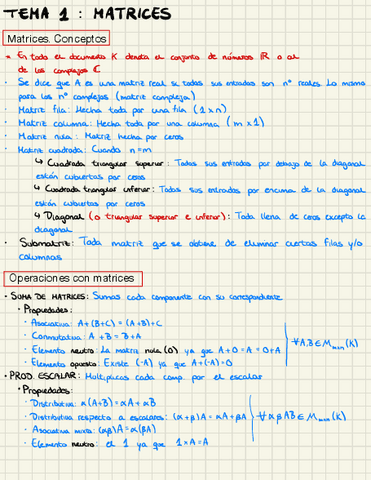 TEMA 1 : MATRICES
Matrices. Conceptos
* En todo el documento K denota el conjunto de números ℝ o al
de los complejos ℂ
· Se dice que A es una matriz real si todas sus entradas son nº reales. Lo mismo
para los nº complejos (matriz compleja)
· Matriz fila: Hecha toda por una fila (1×n)
· Matriz columna: Hecha toda por una columna (m×1)
· Matriz nula: Matriz hecha por ceros
· Matriz cuadrada: Cuando n=m
↳ Cuadrada triangular superior: Todas sus entradas por debajo de la diagonal
están cubiertas por ceros
↳ Cuadrada triangular inferior: Todas sus entradas por encima de la diagonal
están cubiertas por ceros
↳ Diagonal (o triangular superior e inferior): Toda llena de ceros excepto la
diagonal
· Submatriz: Toda matriz que se obtiene de eliminar ciertas filas y/o
columnas
Operaciones con matrices
· SUMA DE MATRICES: Sumas cada componente con su correspondiente
· Propiedades:
· Asociativa: A+(B+C) = (A+B)+C
· Conmutativa: A+B = B+A
· Elemento neutro: La matriz nula (0) ya que A+0 = A = 0+A
· Elemento opuesto: Existe (-A) ya que A+(-A)=0
∀A,B ∈ Mmxn(K)
· PROD. ESCALAR: Multiplicas cada comp. por el escalar
· Propiedades:
· Distributiva: α(A+B) = αA + αB
· Distributiva respecto a escalares: (α+β)A = αA + βA
· Asociativa mixta: (αβ)A = α(βA)
· Elemento neutro: el 1 ya que 1×A = A
∀αβAB ∈ Mmxn(K)